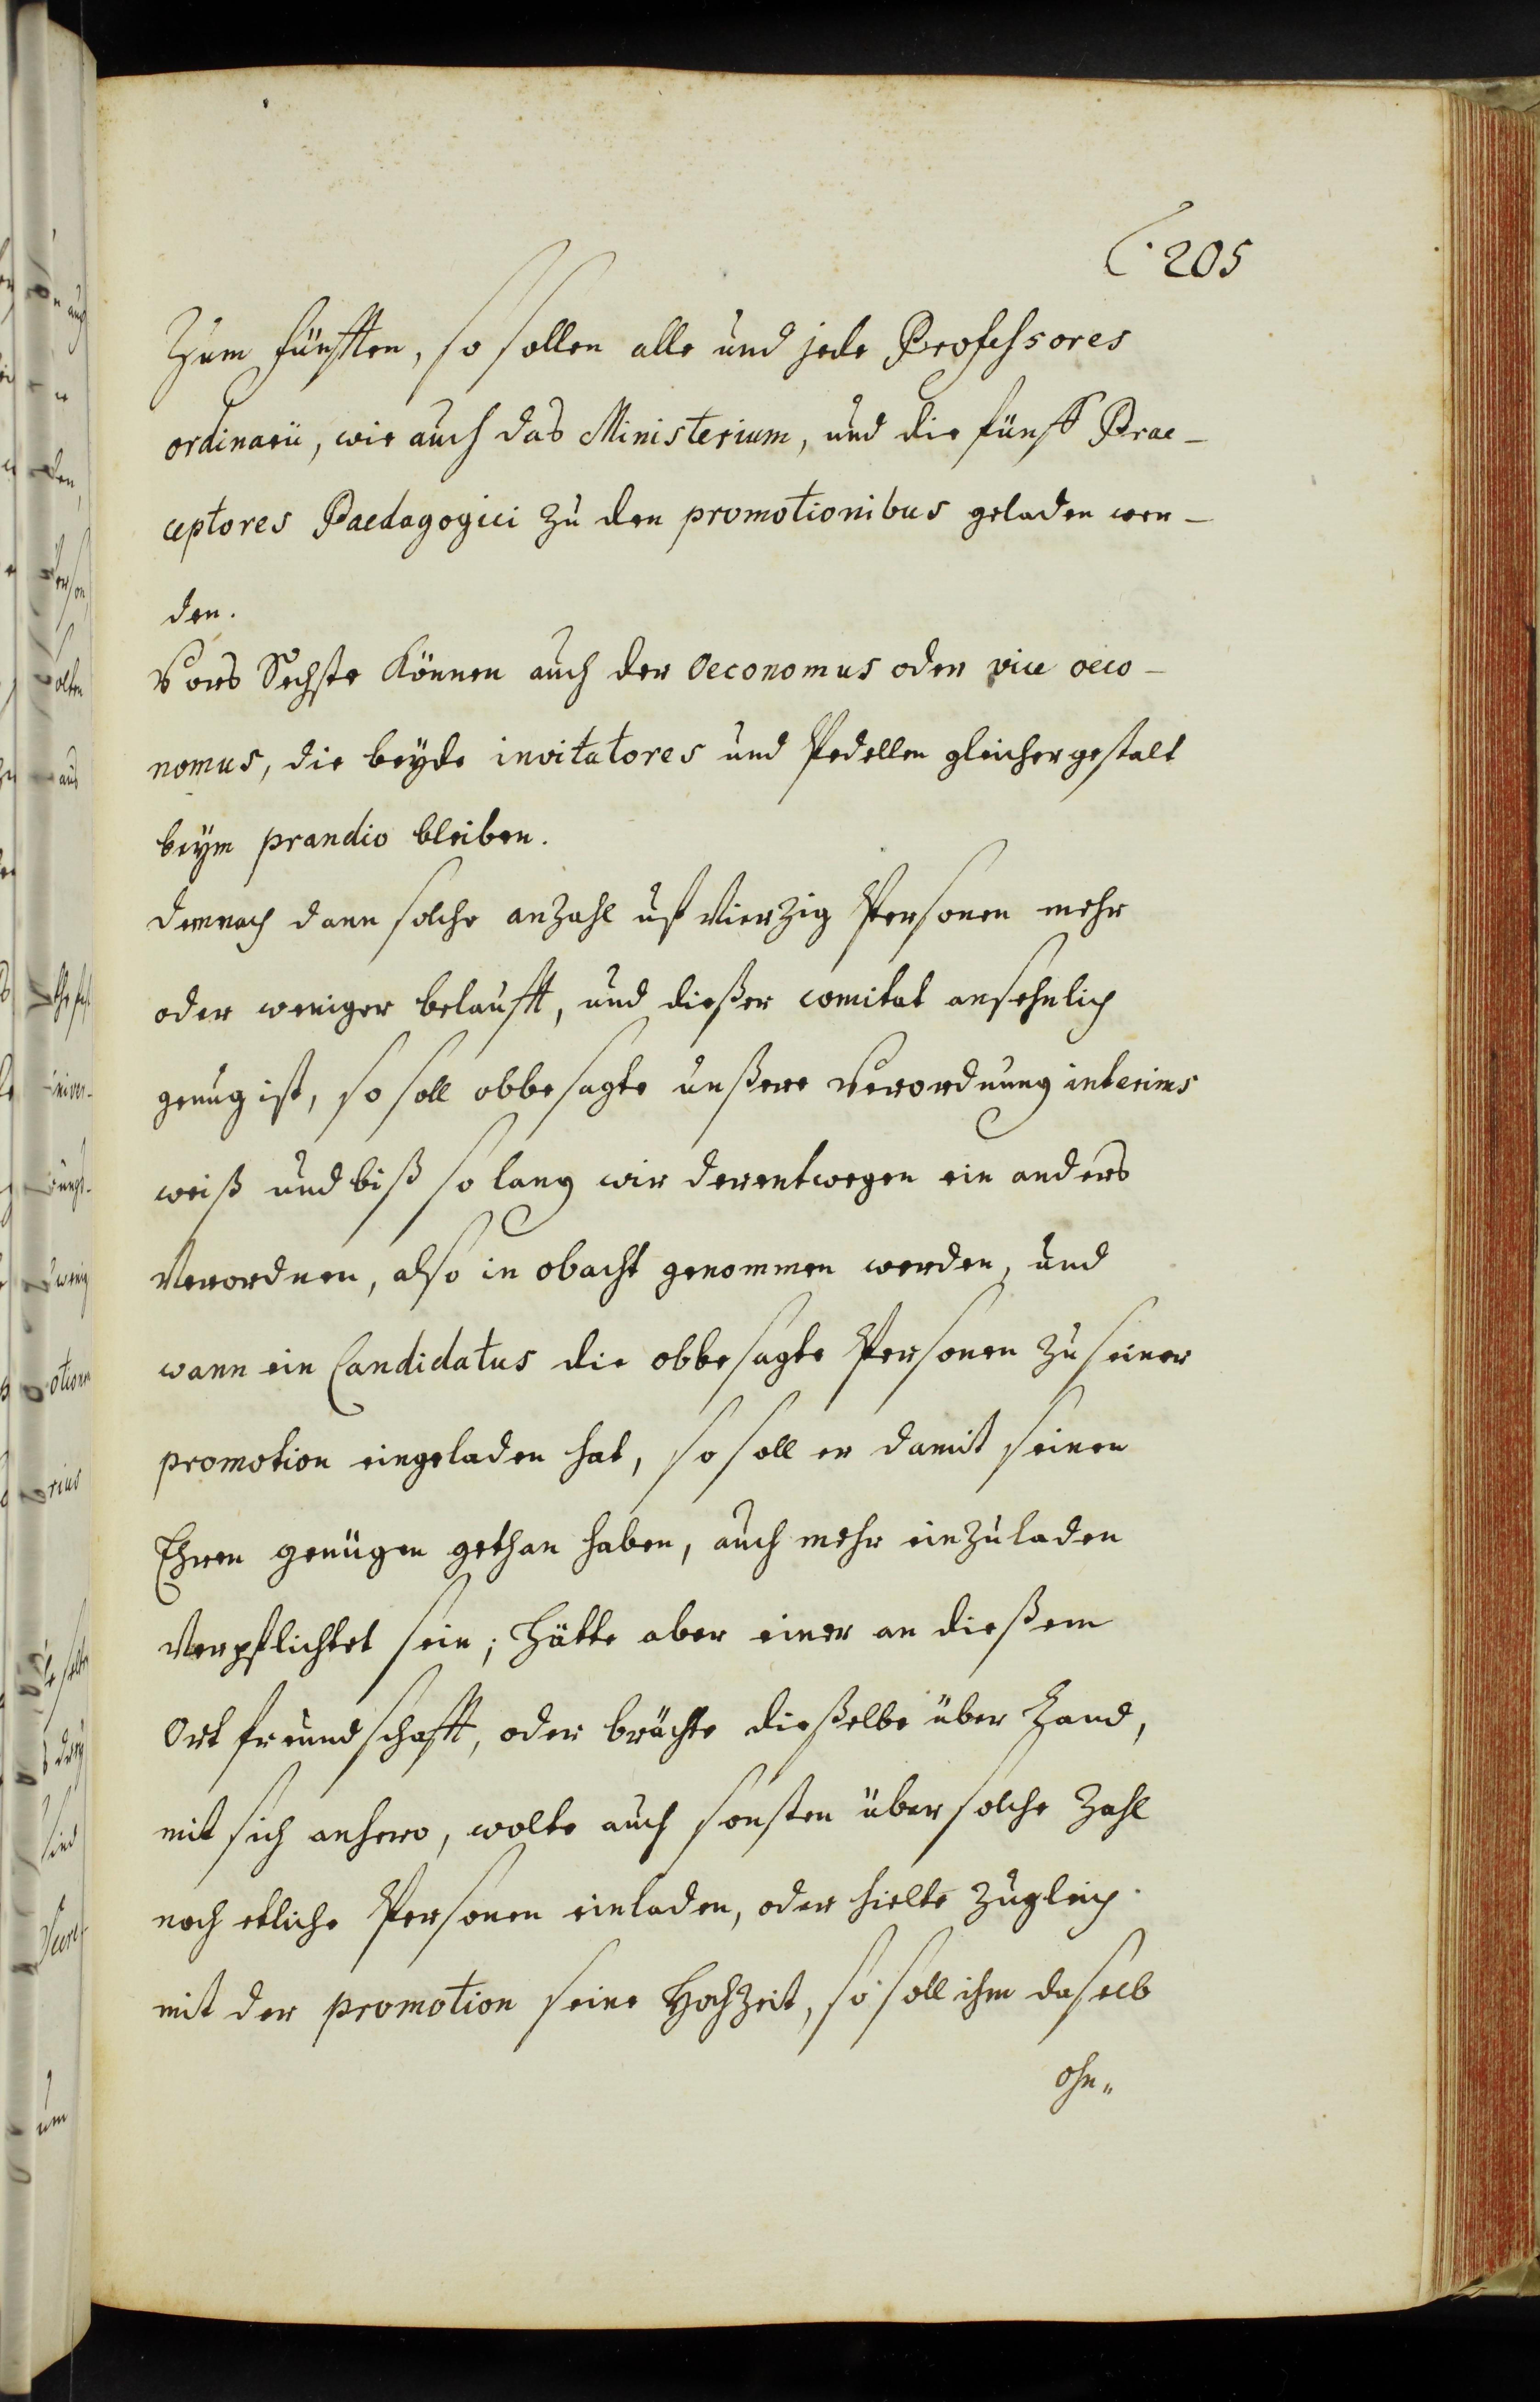 205
Zum fünfften, so sollen alle und jede Professores
ordinarii, wie auch das Ministerium, und die fünff Prae-
ceptores Paedagogici zu den promotionibus geladen wer-
den.
Vors Sechste können auch der Oeconomus oder vice oeco-
nomus, die beyde invitatores und Pedellen gleichergestalt
beym prandio bleiben.
demnach dann solche anzahl uf Vierzig Personen mehr
oder weniger belaufft, und dießer comitat ansehnlich
genug ist, so soll obbesagte unßere Verordnung interims
weiß und biß so lang wir derentwegen ein anders
Verordnen, also in obacht genommen werden, und
wann ein Candidatus die obbesagte Personen zu seiner
promotion eingeladen hat, so soll er damit seinen
Ehren genügen gethan haben, auch mehr einzuladen
Verpflichtet sein; hätte aber einer an dießem
Ort freundschafft, oder brächte dießelbe über Land,
mit sich anhero, wolte auch sonsten über solche Zahl
noch etliche Personen einladen, oder hielte zugleich
mit der promotion seine Hochzeit, so soll ihm daselb
ohn„